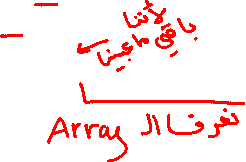 لأننا
باقي ما عيينا
نعرفنا ال Array